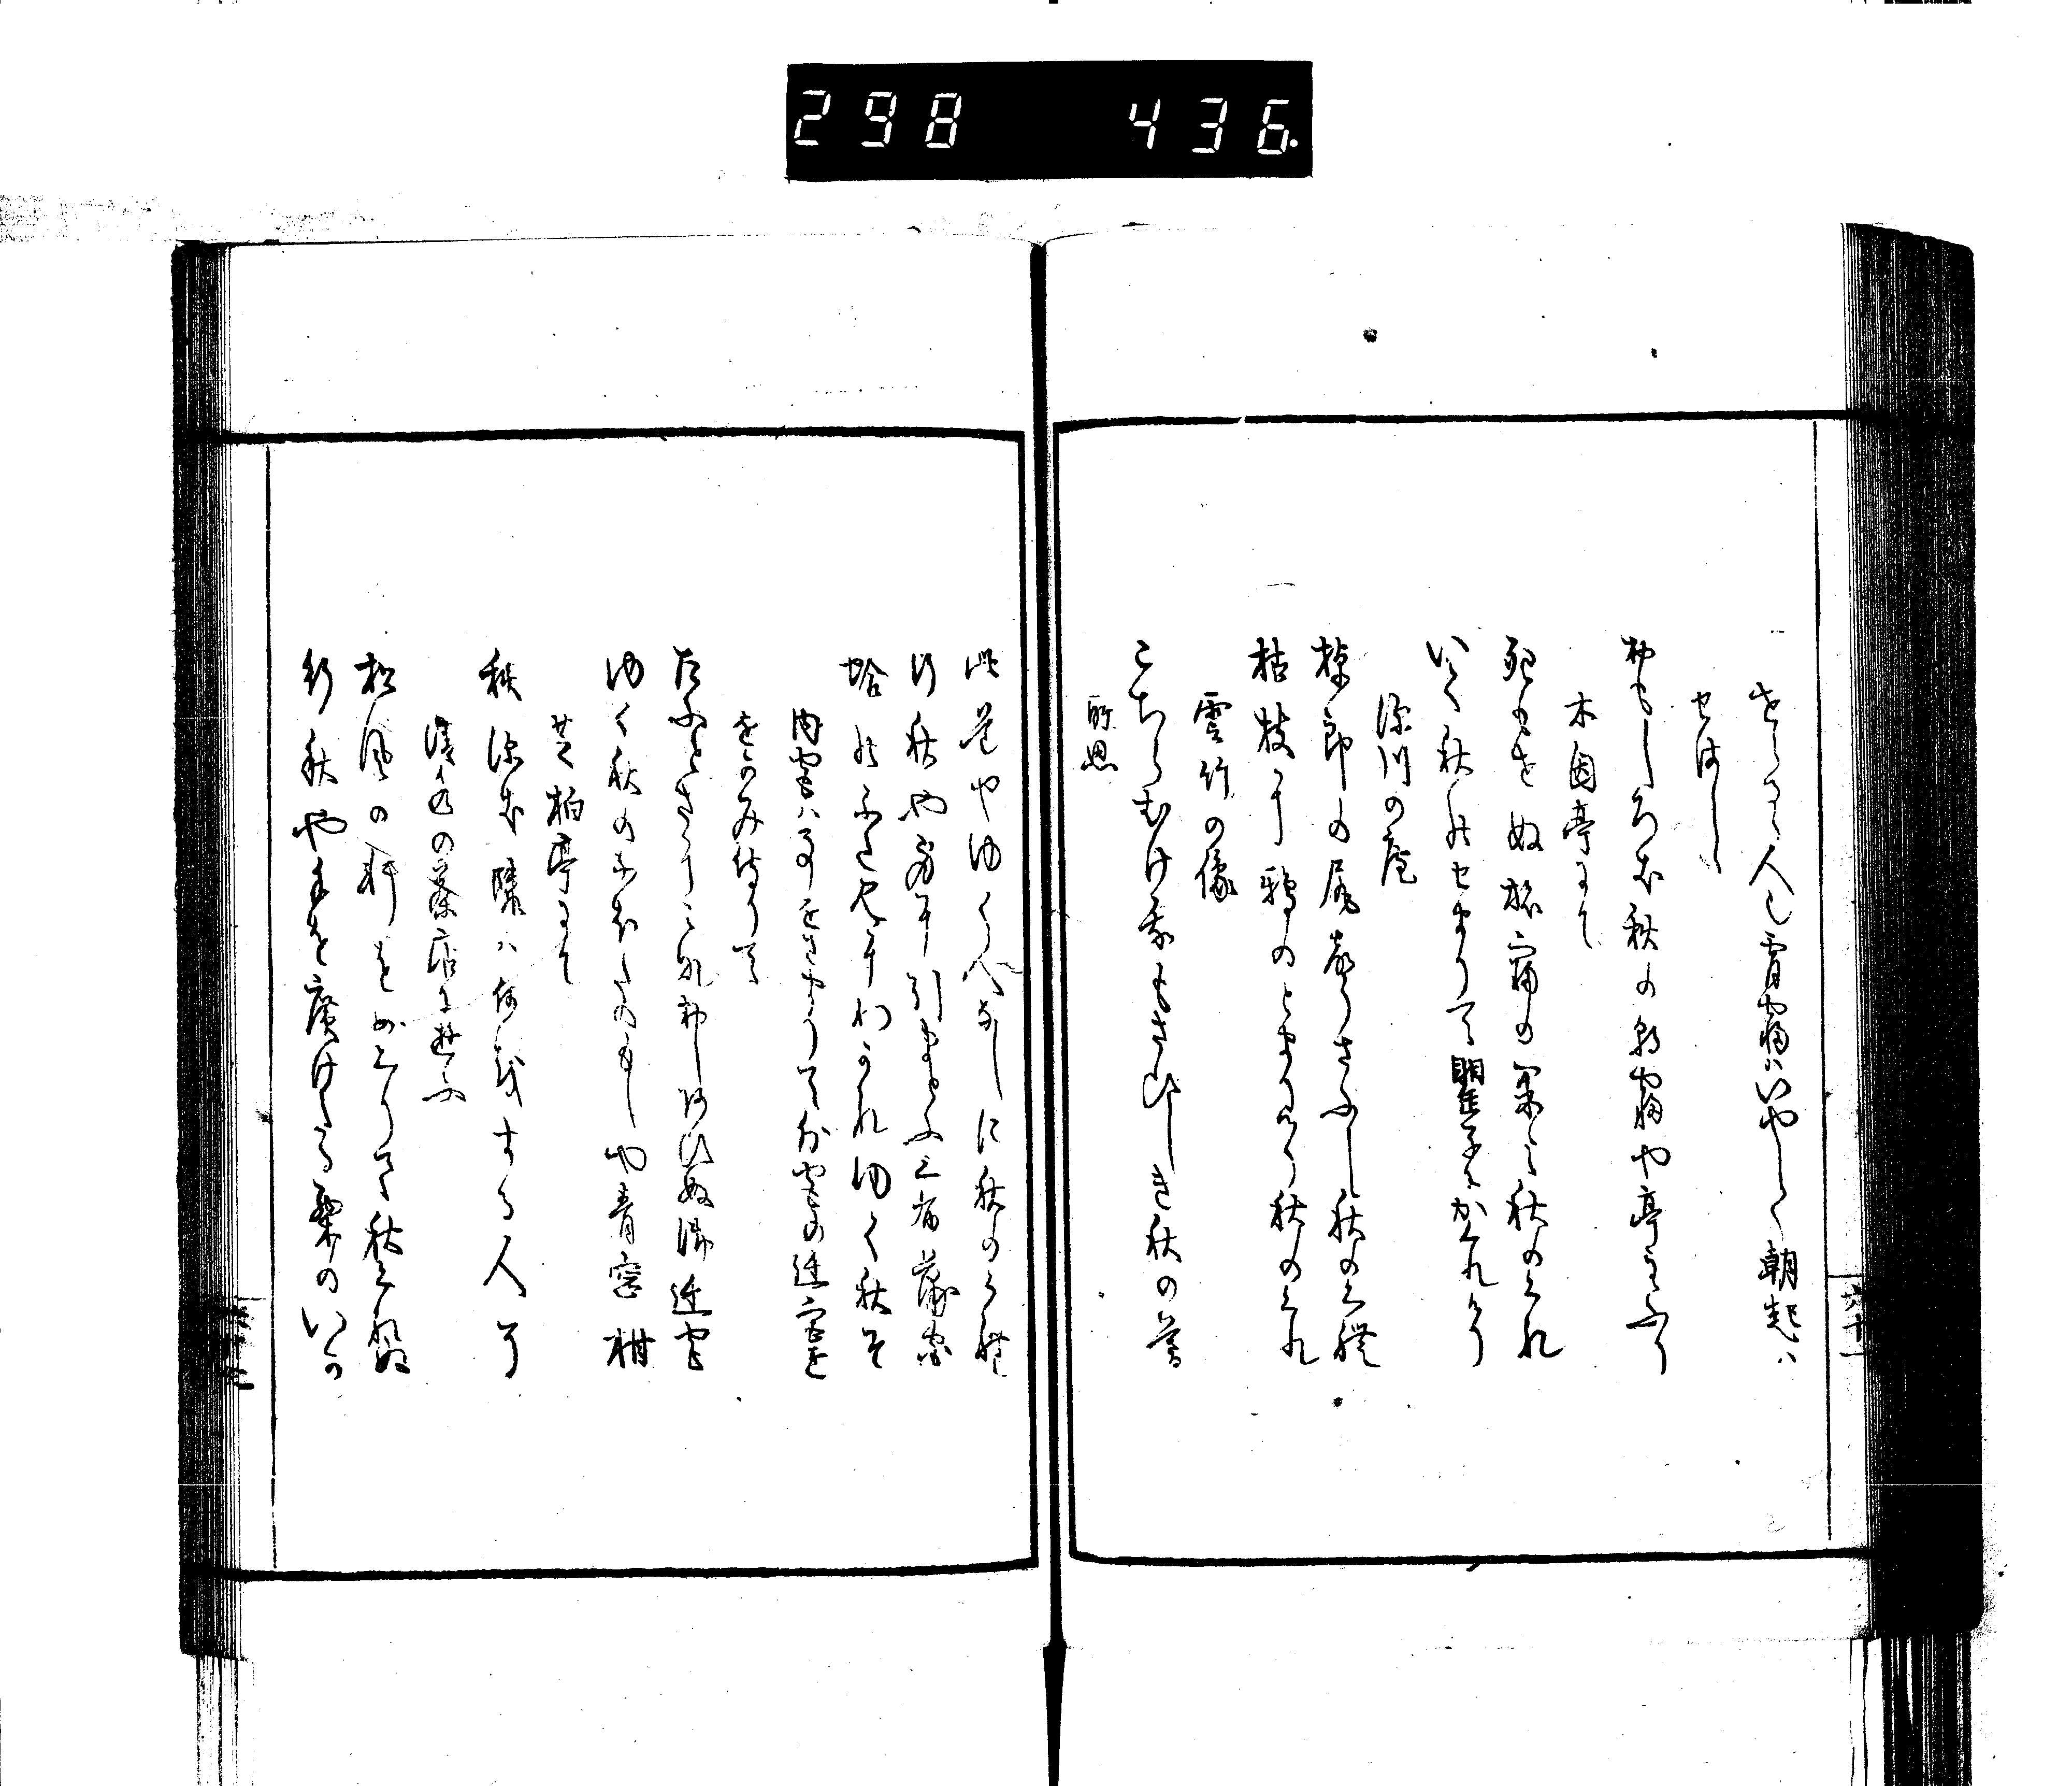 298 436.
せらるゝ人も宵寐ハいやしく朝起ハ
せはし
おもしろき秋の朝寐や亭主ふり
木因亭にて
死もせぬ旅寐の果よ秋のくれ
いく秋のせまりて罌子にかくれけり
深川の庵
榑郎の尻声かなし秋の暮
枯枝に鴉のとまりけり秋のくれ
雲竹の像
こちらむけ我もさひしき秋の暮
所思
此道やゆく人なしに秋のくれ
行秋や身に引まとふ三布蒲団
蛤のふたみにわかれゆく秋そ
内宮ハ事をさまりて外宮の遷宮を
をかみ侍りて
たふとさにみなおしあひぬ御遷宮
ゆく秋のなほたのもしや青蜜柑
芝柏亭にて
秋深き隣ハ何をする人そ
清水の茶店に遊ふ
松風の軒をめくりて秋くれぬ
行秋や手を広けたる栗のいか